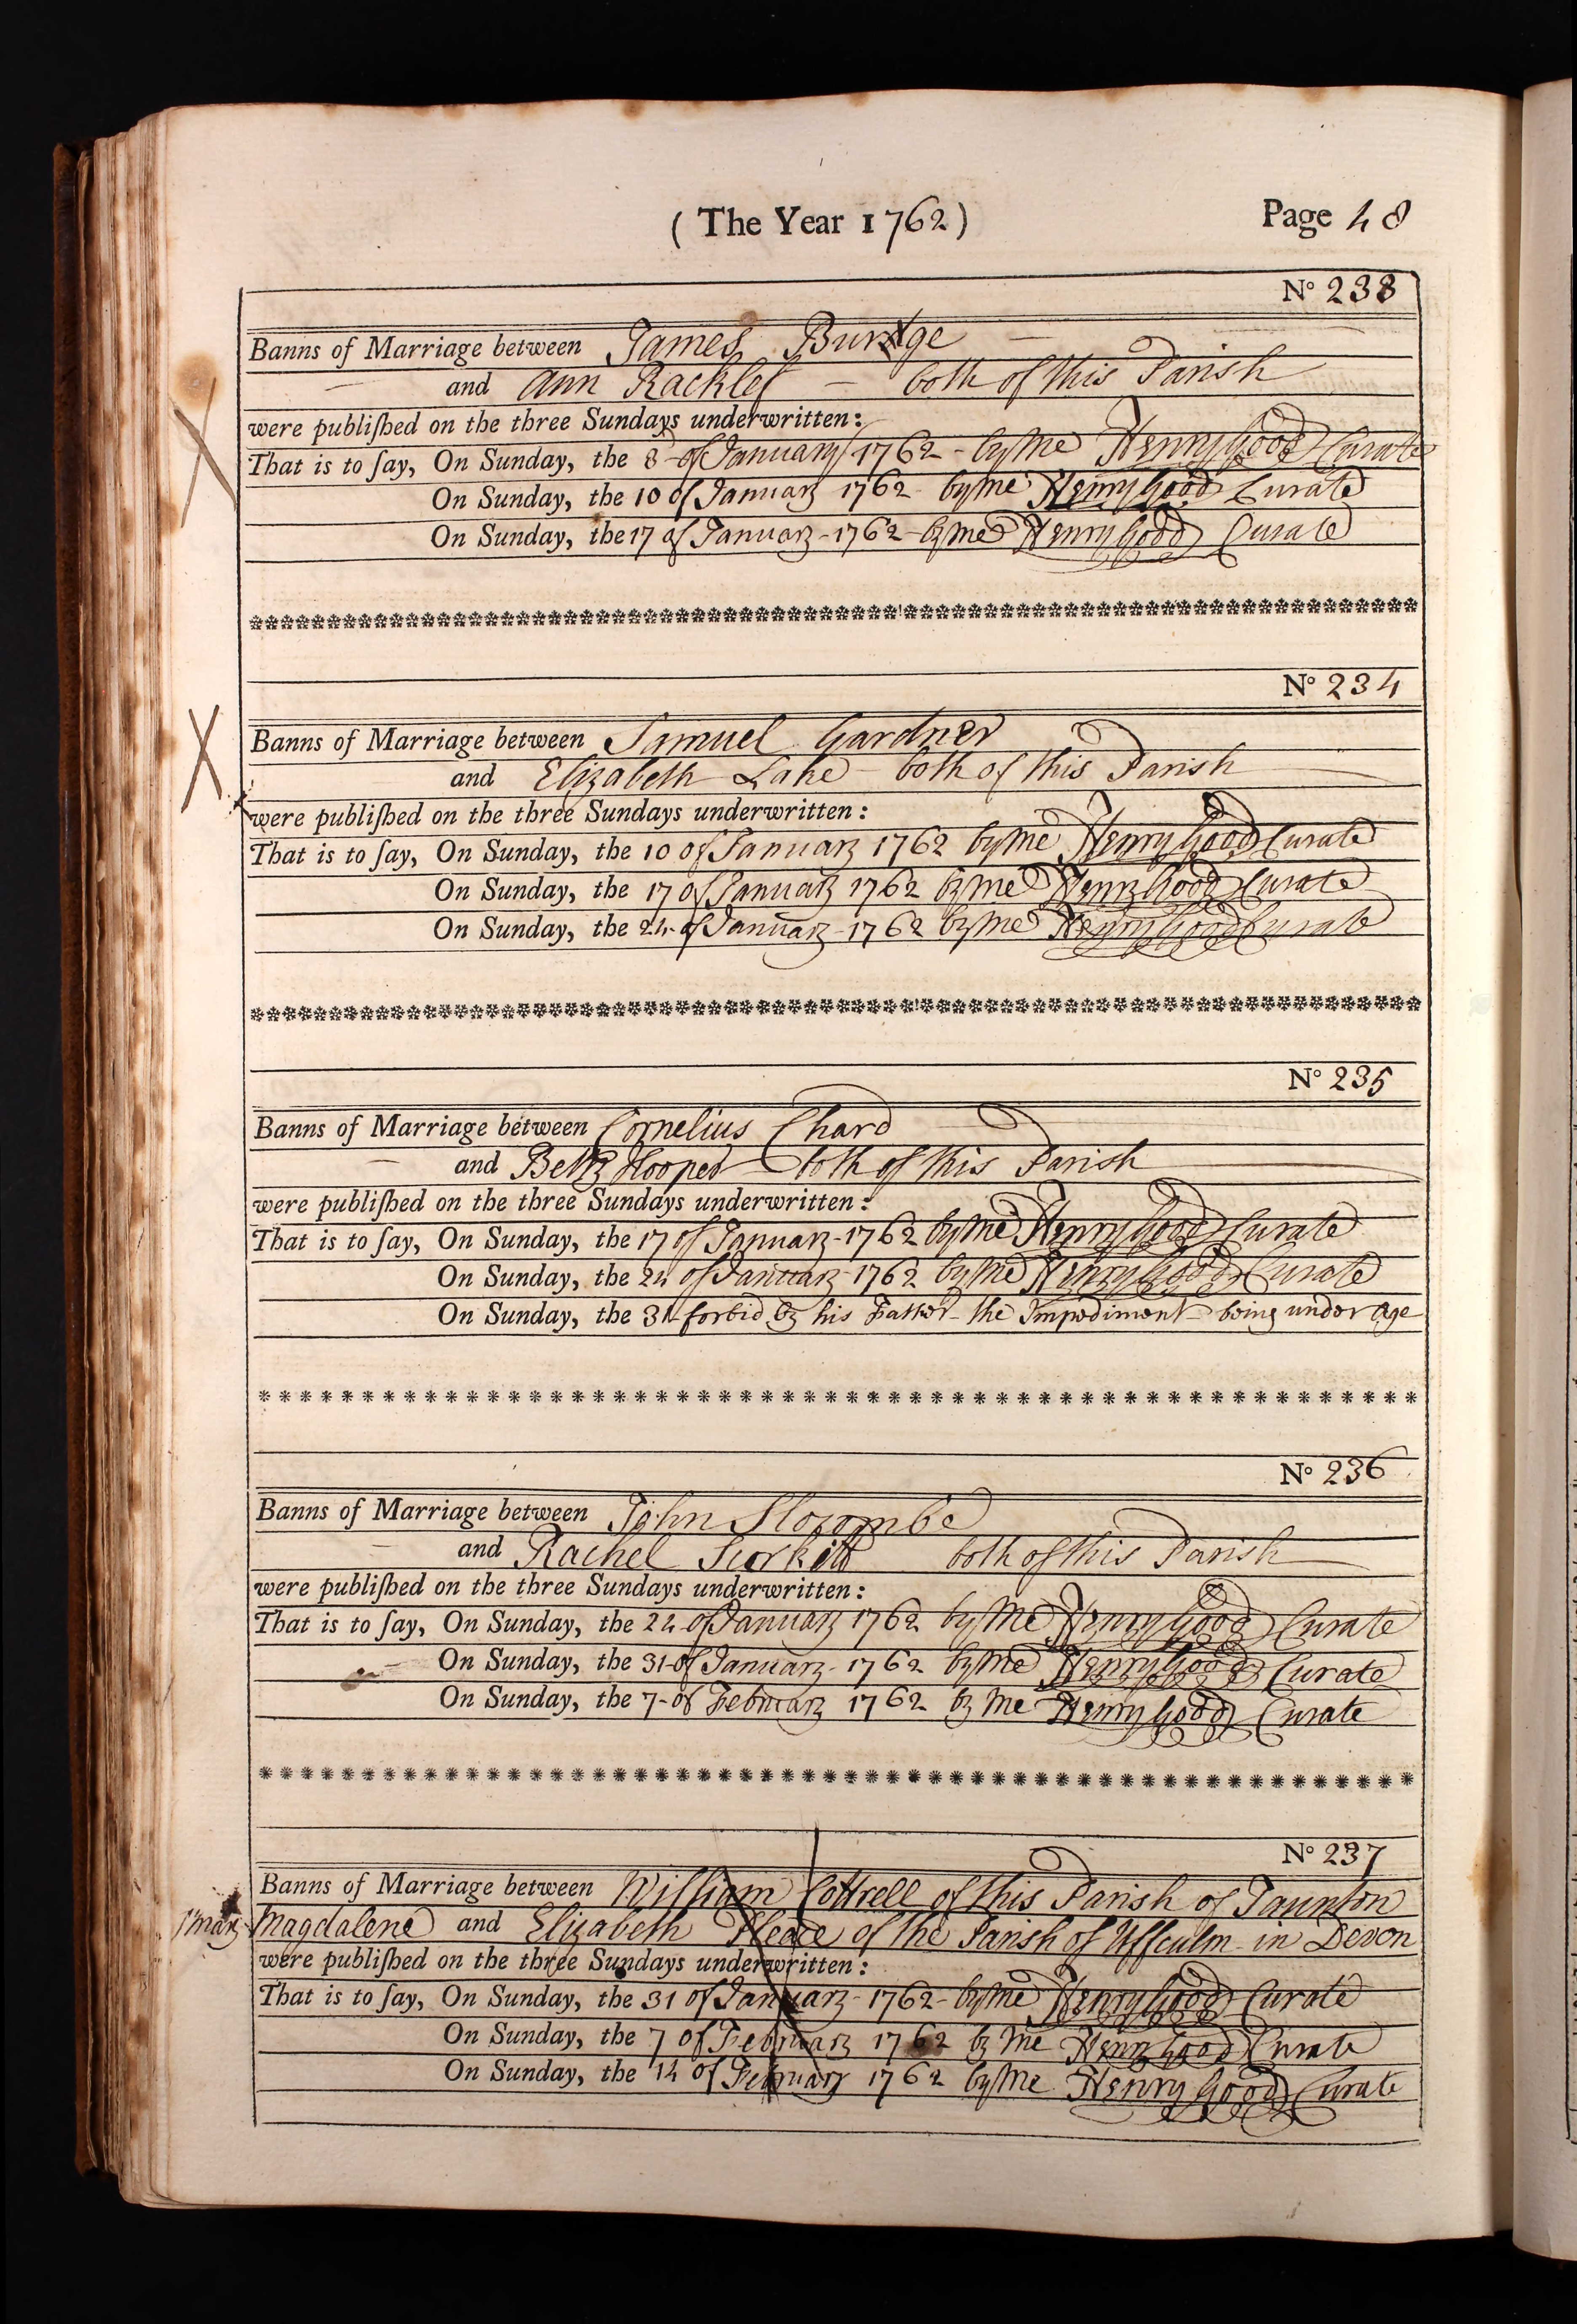 ( The Year 1762)
Page 48
No 233
Banns of Marriage between James Burge
and Ann Racklet both of this Parish
were publiſhed on the three Sundays underwritten:
That is to ſay, On Sunday, the 8 of January 1762 - by me Henry Good Curate
On Sunday, the 10 of January 1762 by me Henry Good Curate
On Sunday, the 17 of January - 1762 by me Henry Good Curate
No 234
Banns of Marriage between Samuel Gardner
and Elizabeth Lake - both of this Parish
were publiſhed on the three Sundays underwritten:
That is to ſay, On Sunday, the 10 of January 1762 by me Henry Good Curate
On Sunday, the 17 of January 1762 by me Henry Good Curate
On Sunday, the 24 of January - 1762 by me Henry Good Curate
No 235
Banns of Marriage between Cornelius Chard
and Betty Hooper both of this Parish
were publiſhed on the three Sundays underwritten:
That is to ſay, On Sunday, the 17 of January - 1762 by me Henry Good Curate
On Sunday, the 24 of January 1762 by me Henry Good Curate
On Sunday, the 31 forbid by his Father - the Impediment - being under age
No 236
Banns of Marriage between John Slocombe
and Rachel both of this Parish
were publiſhed on the three Sundays underwritten:
That is to ſay, On Sunday, the 24 of January 1762 by me Henry Good Curate
On Sunday, the 31 of January - 1762 by me Henry Good Curate
On Sunday, the 7 of February 1762 by me Henry Good Curate
No 237
Banns of Marriage between William Cottrell of this Parish of Taunton
Magdalene and Elizabeth of the Parish of Uffculm in Devon
were publiſhed on the three Sundays underwritten:
That is to ſay, On Sunday, the 31 of January - 1762 - by me Henry Good Curate
On Sunday, the 7 of February 1762 by me Henry Good Curate
On Sunday, the 14 of February 1762 by me Henry Good Curate